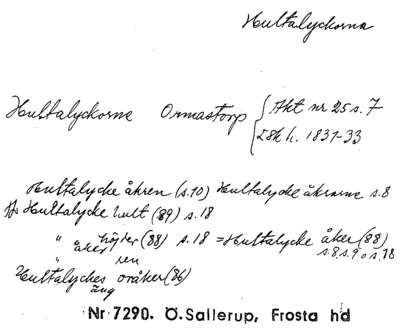 Hultalyckorna
Hultalyckorna Ormastorp { Akt nr 25 s. 7
LSk h. 1831-33
Hultalycke åkren (s.10) Hultalycke åkrarne s.8
Hultalycke hult (89) s. 18
" höjder (88) s. 18 = Hultalycke åker (88)
åker s. 8 s. 9 o s. 18
" ren
Hultalyckes oråker (86)
äng
Nr 7290. Ö. Sallerup, Frosta hd